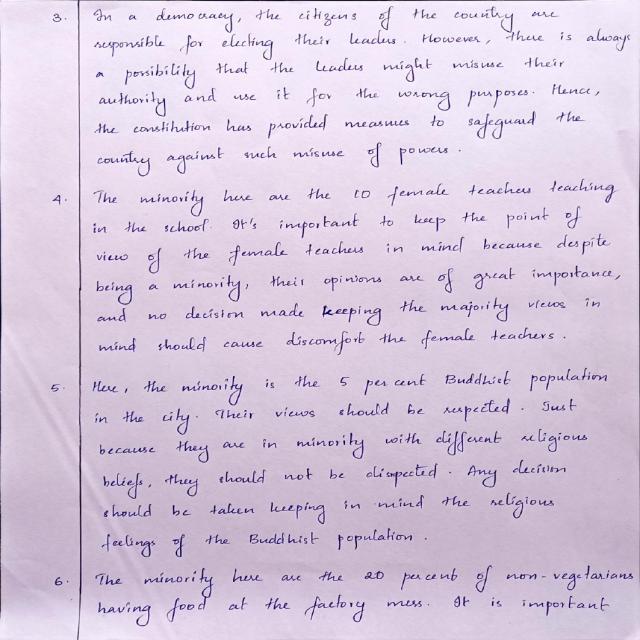 3. In a democracy, the citizens of the country are
responsible for electing their leaders. However, there is always
a possibility that the leaders might misuse their
authority and use it for the wrong purposes. Hence,
the constitution has provided measures to safeguard the
country against such misuse of powers.
4. The minority here are the 10 female teachers teaching
in the school. It's important to keep the point of
view of the female teachers in mind because despite
being a minority, their opinions are of great importance,
and no decision made keeping the majority views in
mind should cause discomfort the female teachers.
5. Here, the minority is the 5 per cent Buddhist population
in the city. Their views should be respected. Just
because they are in minority with different religious
beliefs, they should not be disrpected. Any decision
should be taken keeping in mind the religious
feelings of the Buddhist population.
6. The minority here are the 20 percent of non-vegetarians
having food at the factory mess. It is important